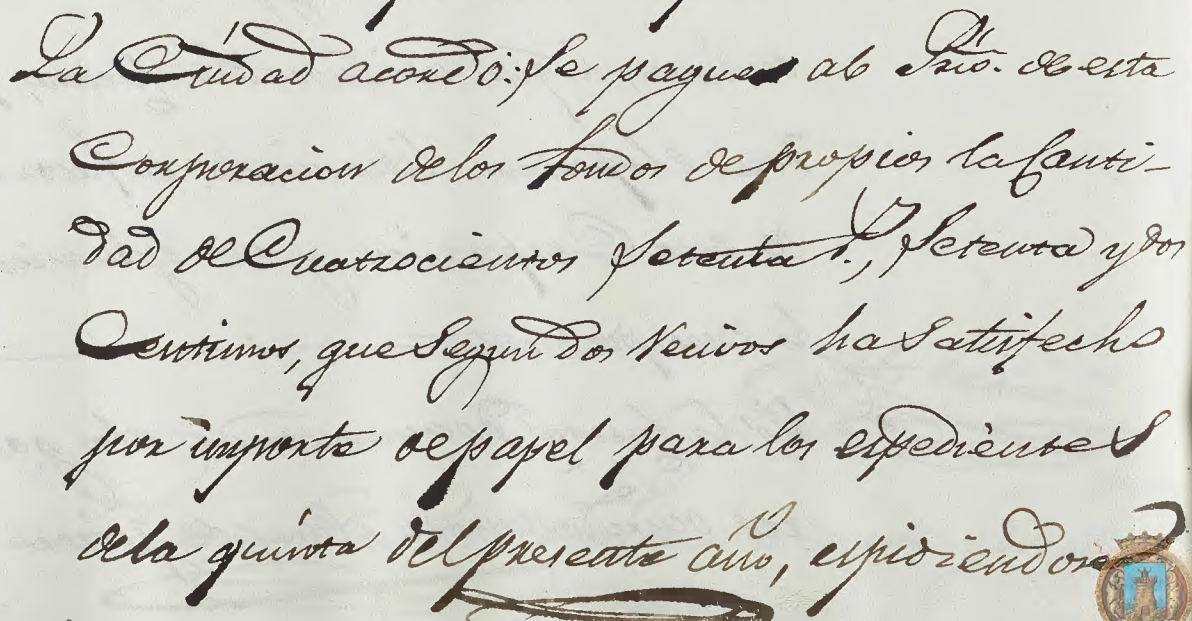 La Ciudad acordó: Se pague al Srio. de esta
Corporacion de los fondos de propios la Canti-
dad de Cuatrocientos Setenta r.s, Setenta y dos
Centimos, que Segun dos Recivos ha Satisfecho
por importe de papel para los espedientes
de la quinta del presente año, espidiendose